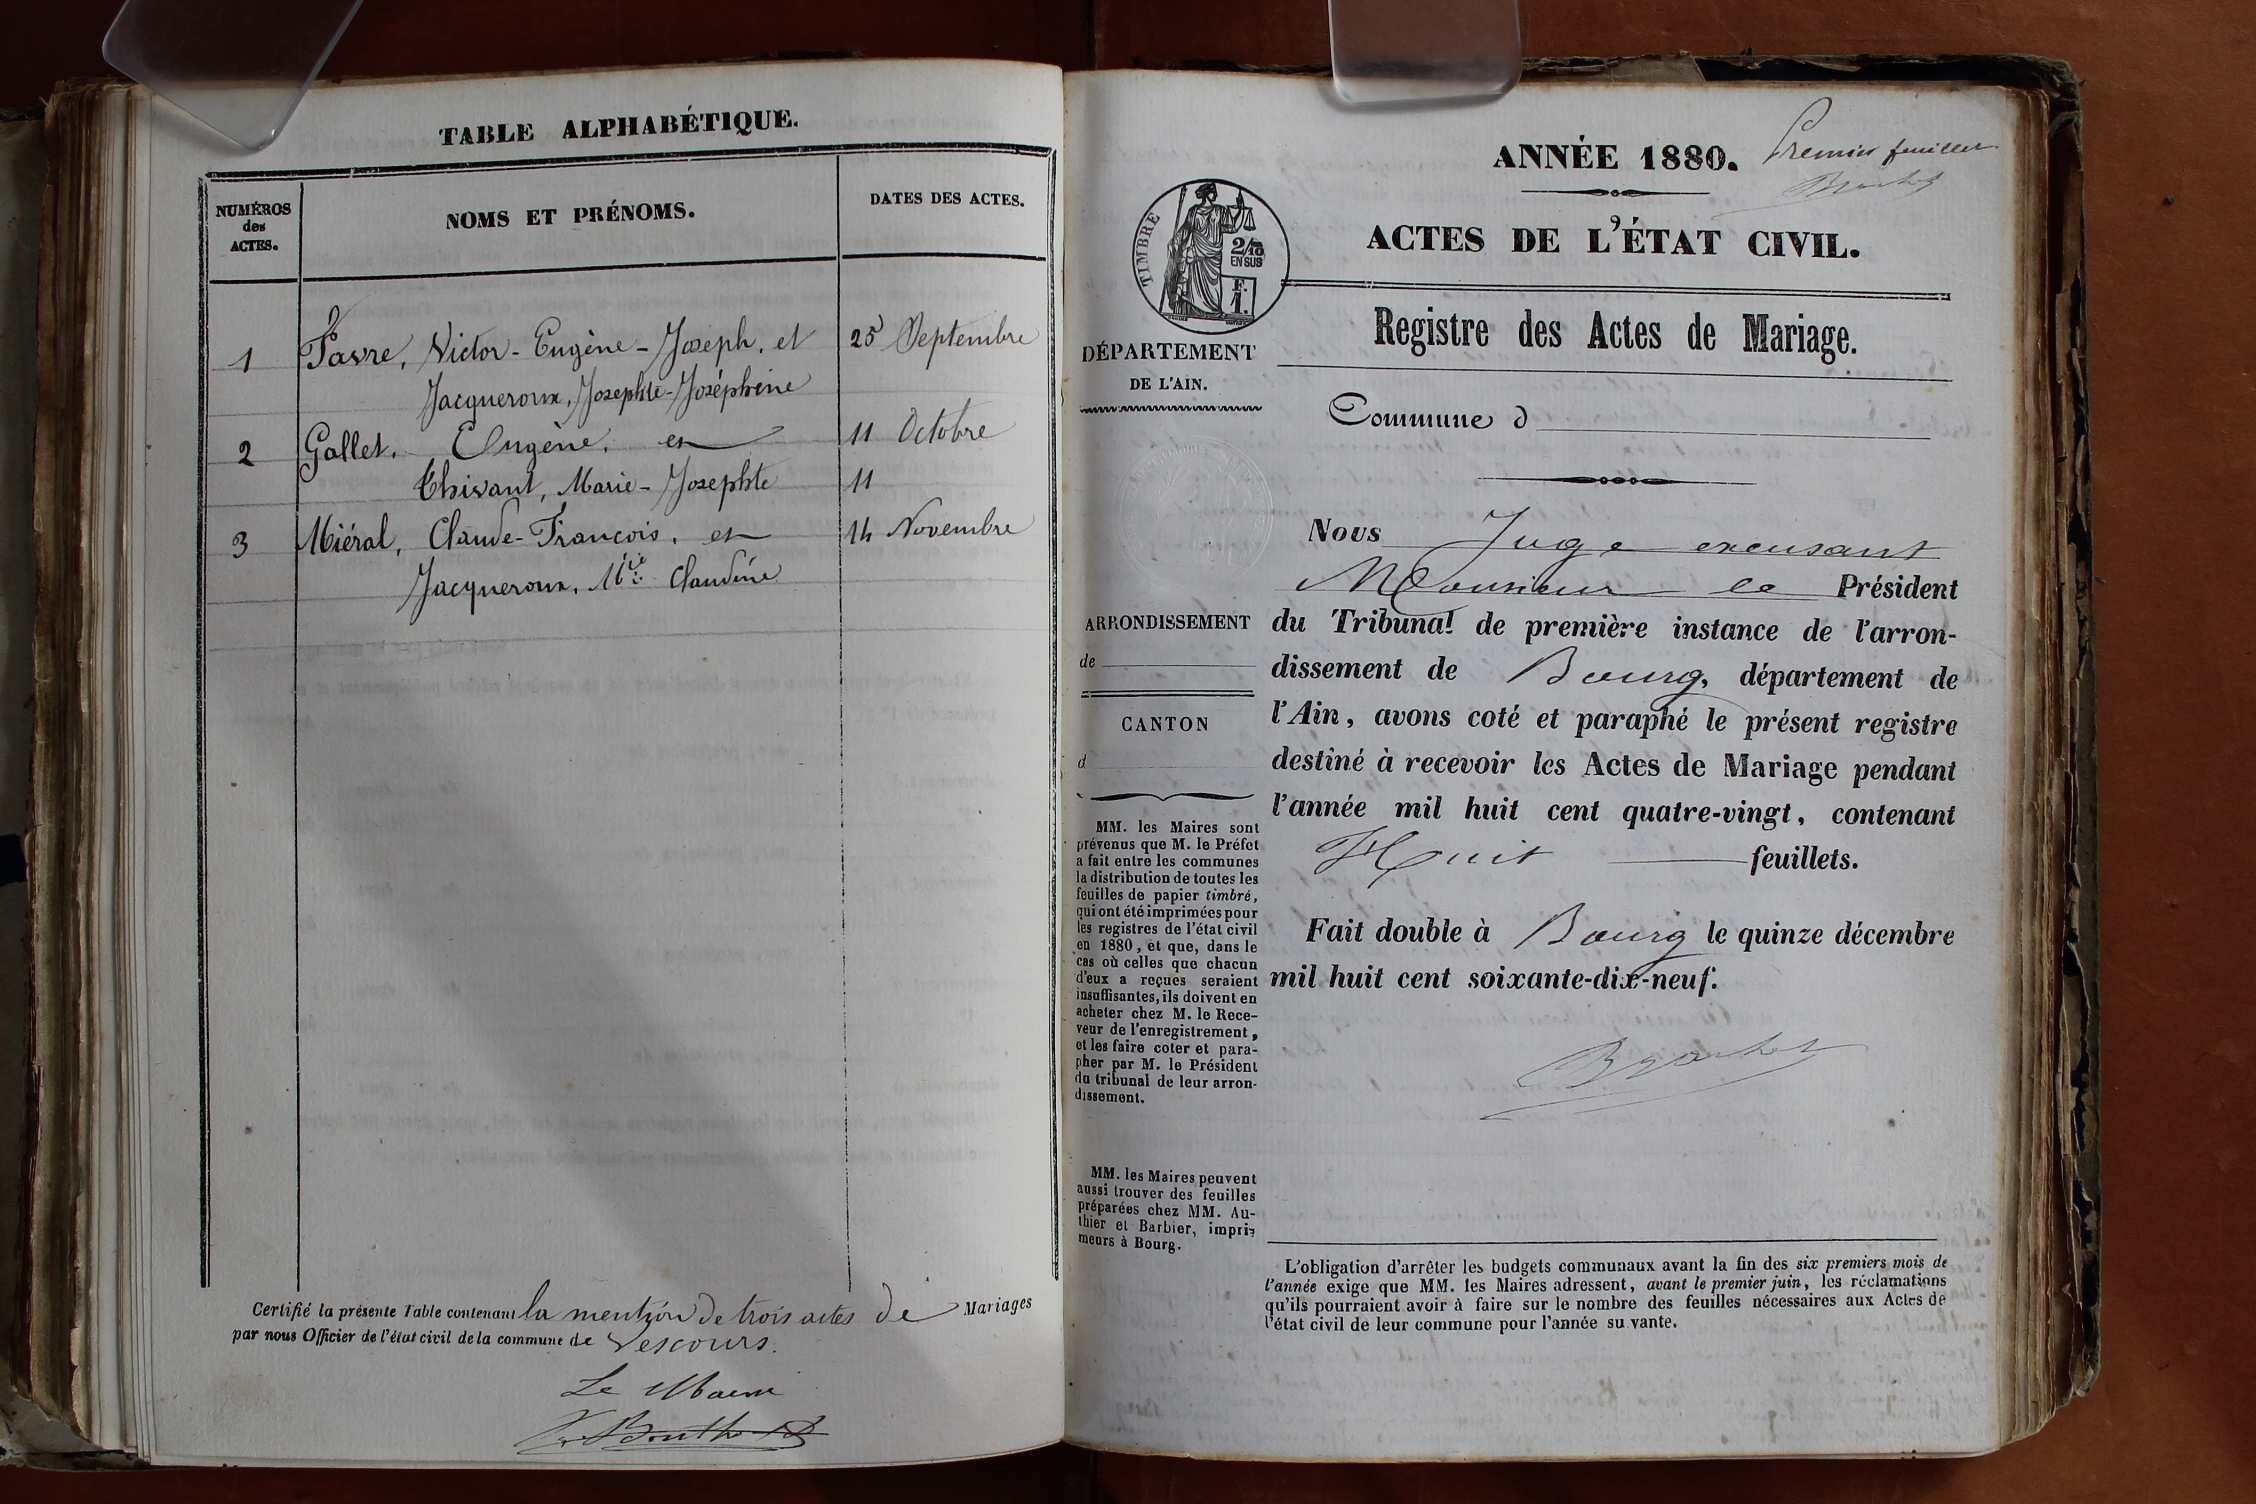 TABLE ALPHABÉTIQUE.
NUMÉROS
des
ACTES.
NOMS ET PRÉNOMS.
DATES DES ACTES.
1 Favre, Victor-Eugène-Joseph, et 25 Septembre
Jacqueroux, Josephte-Joséphine
2 Gallet, Eugène, et 11 Octobre
Thivant, Marie-Josephte 11
3 Miéral, Claude-François, et 14 Novembre
Jacqueroux, Mie Claudine
Certifié la présente Table contenant la mention de trois actes de Mariages
par nous Officier de l'état civil de la commune de Vescours.
Le Maire
Premier feuillet
ANNÉE 1880.
ACTES DE L'ÉTAT CIVIL.
TIMBRE
2/10
EN SUS
F.
1.
Registre des Actes de Mariage.
DÉPARTEMENT
DE L'AIN.
Commune d
Nous Juge excusant
Monsieur le Président
du Tribunal de première instance de l'arron-
dissement de Bourg, département de
l'Ain, avons coté et paraphé le présent registre
destiné à recevoir les Actes de Mariage pendant
l'année mil huit cent quatre-vingt, contenant
Huit feuillets.
Fait double à Bourg le quinze décembre
mil huit cent soixante-dix-neuf.
ARRONDISSEMENT
de
CANTON
d
MM. les Maires sont
prévenus que M. le Préfet
a fait entre les communes
la distribution de toutes les
feuilles de papier timbré,
qui ont été imprimées pour
les registres de l'état civil
en 1880, et que, dans le
cas où celles que chacun
d'eux a reçues seraient
insuffisantes, ils doivent en
acheter chez M. le Rece-
veur de l'enregistrement,
et les faire coter et para-
pher par M. le Président
du tribunal de leur arron-
dissement.
MM. les Maires peuvent
aussi trouver des feuilles
préparées chez MM. Au-
thier et Barbier, impri-
meurs à Bourg.
L'obligation d'arrêter les budgets communaux avant la fin des six premiers mois de
l'année exige que MM. les Maires adressent, avant le premier juin, les réclamations
qu'ils pourraient avoir à faire sur le nombre des feuilles nécessaires aux Actes de
l'état civil de leur commune pour l'année suivante.